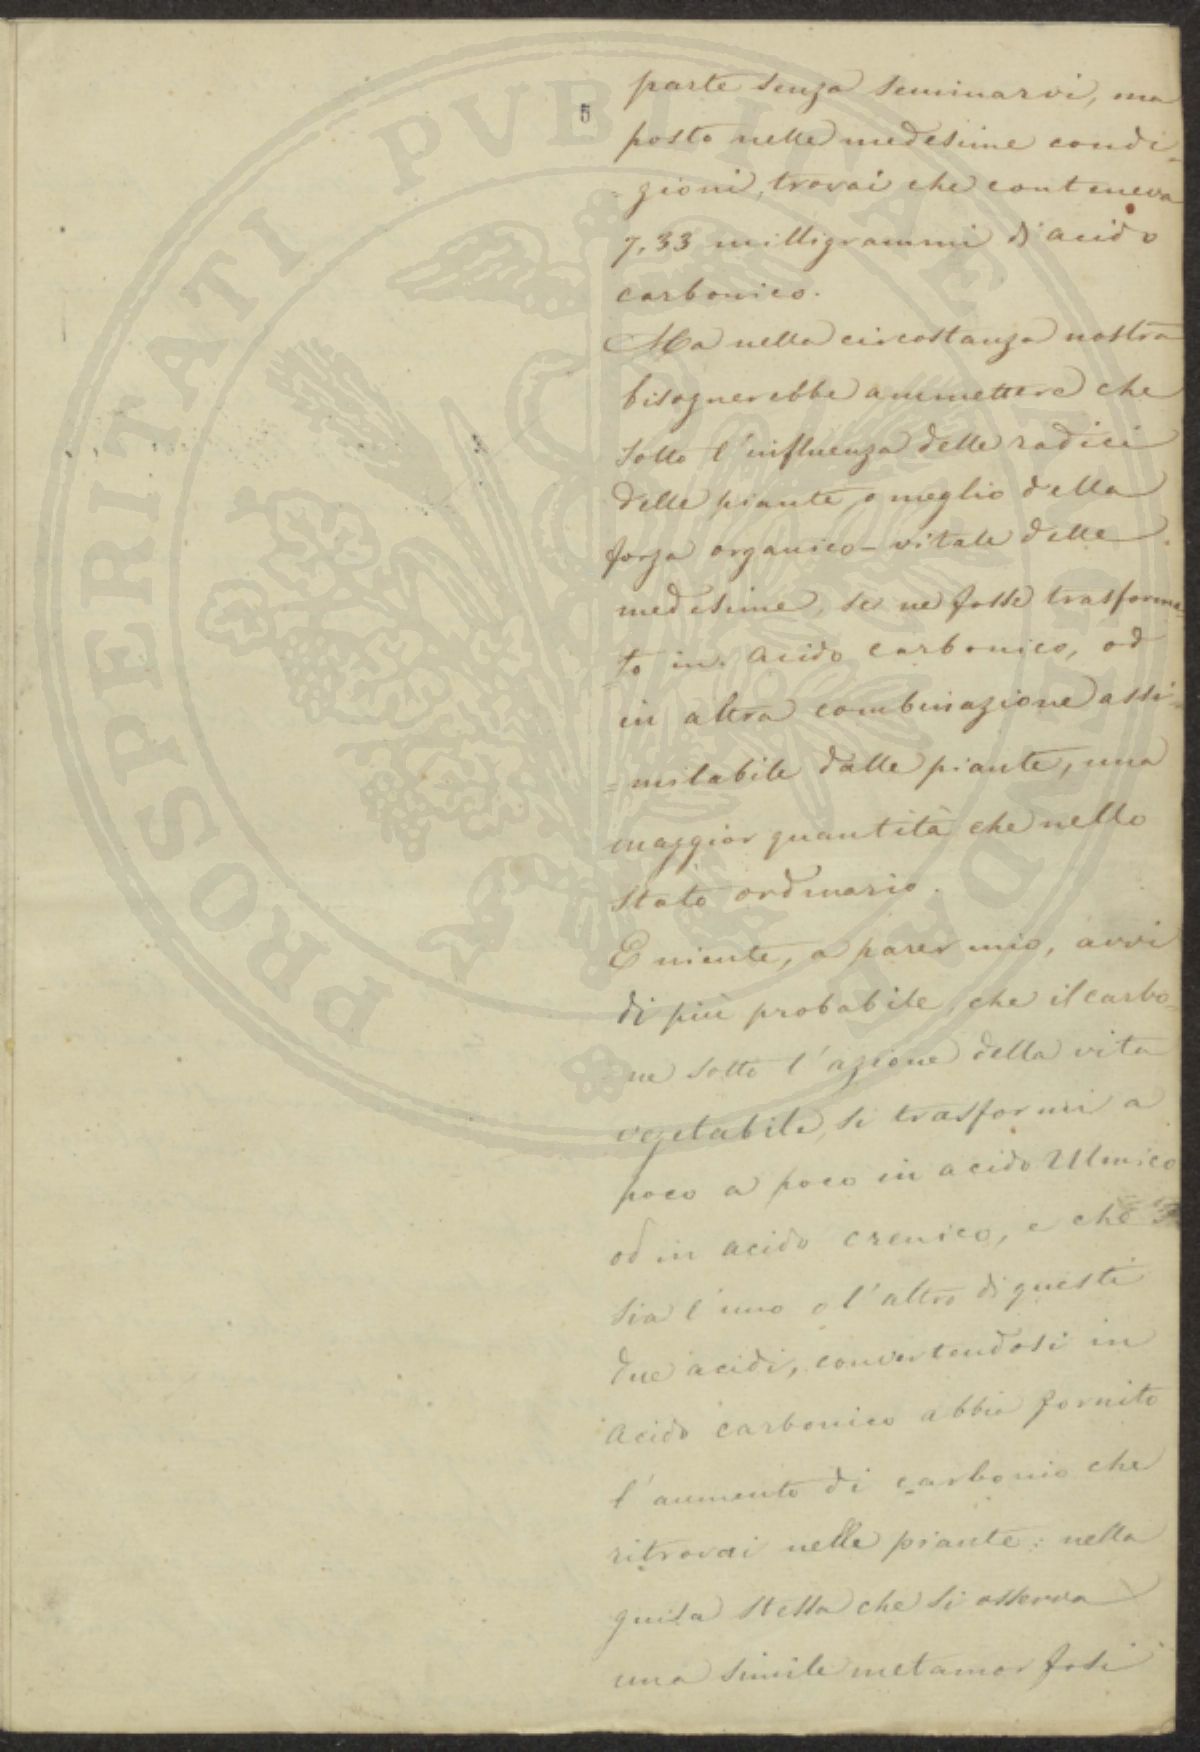 5
parte senza seminarvi, ma
posto nelle medesime condi-
-zioni, trovai che conteneva
7,33 milligrammi d'acido
carbonico.
Ma nella circostanza nostra
bisognerebbe ammettere che
sotto l'influenza delle radici
delle piante, o meglio della
forza organico-vitale delle
medesime, se ne fosse trasforma-
-to in acido carbonico, od
in altra combinazione assi-
=milabile dalle piante, una
maggior quantità che nello
stato ordinario.
E niente, a parer mio, avvi
di più probabile, che il carbo-
-ne sotto l'azione della vita
vegetabile, si trasformi a
poco a poco in acido Ulmico
od in acido crenico, e che
sia l'uno o l'altro di questi
due acidi, convertendosi in
acido carbonico abbia fornito
l'aumento di carbonio che
ritrovai nelle piante: nella
guisa stessa che si osserva
una simile metamorfosi
PROSPERITATI PVBLICAE